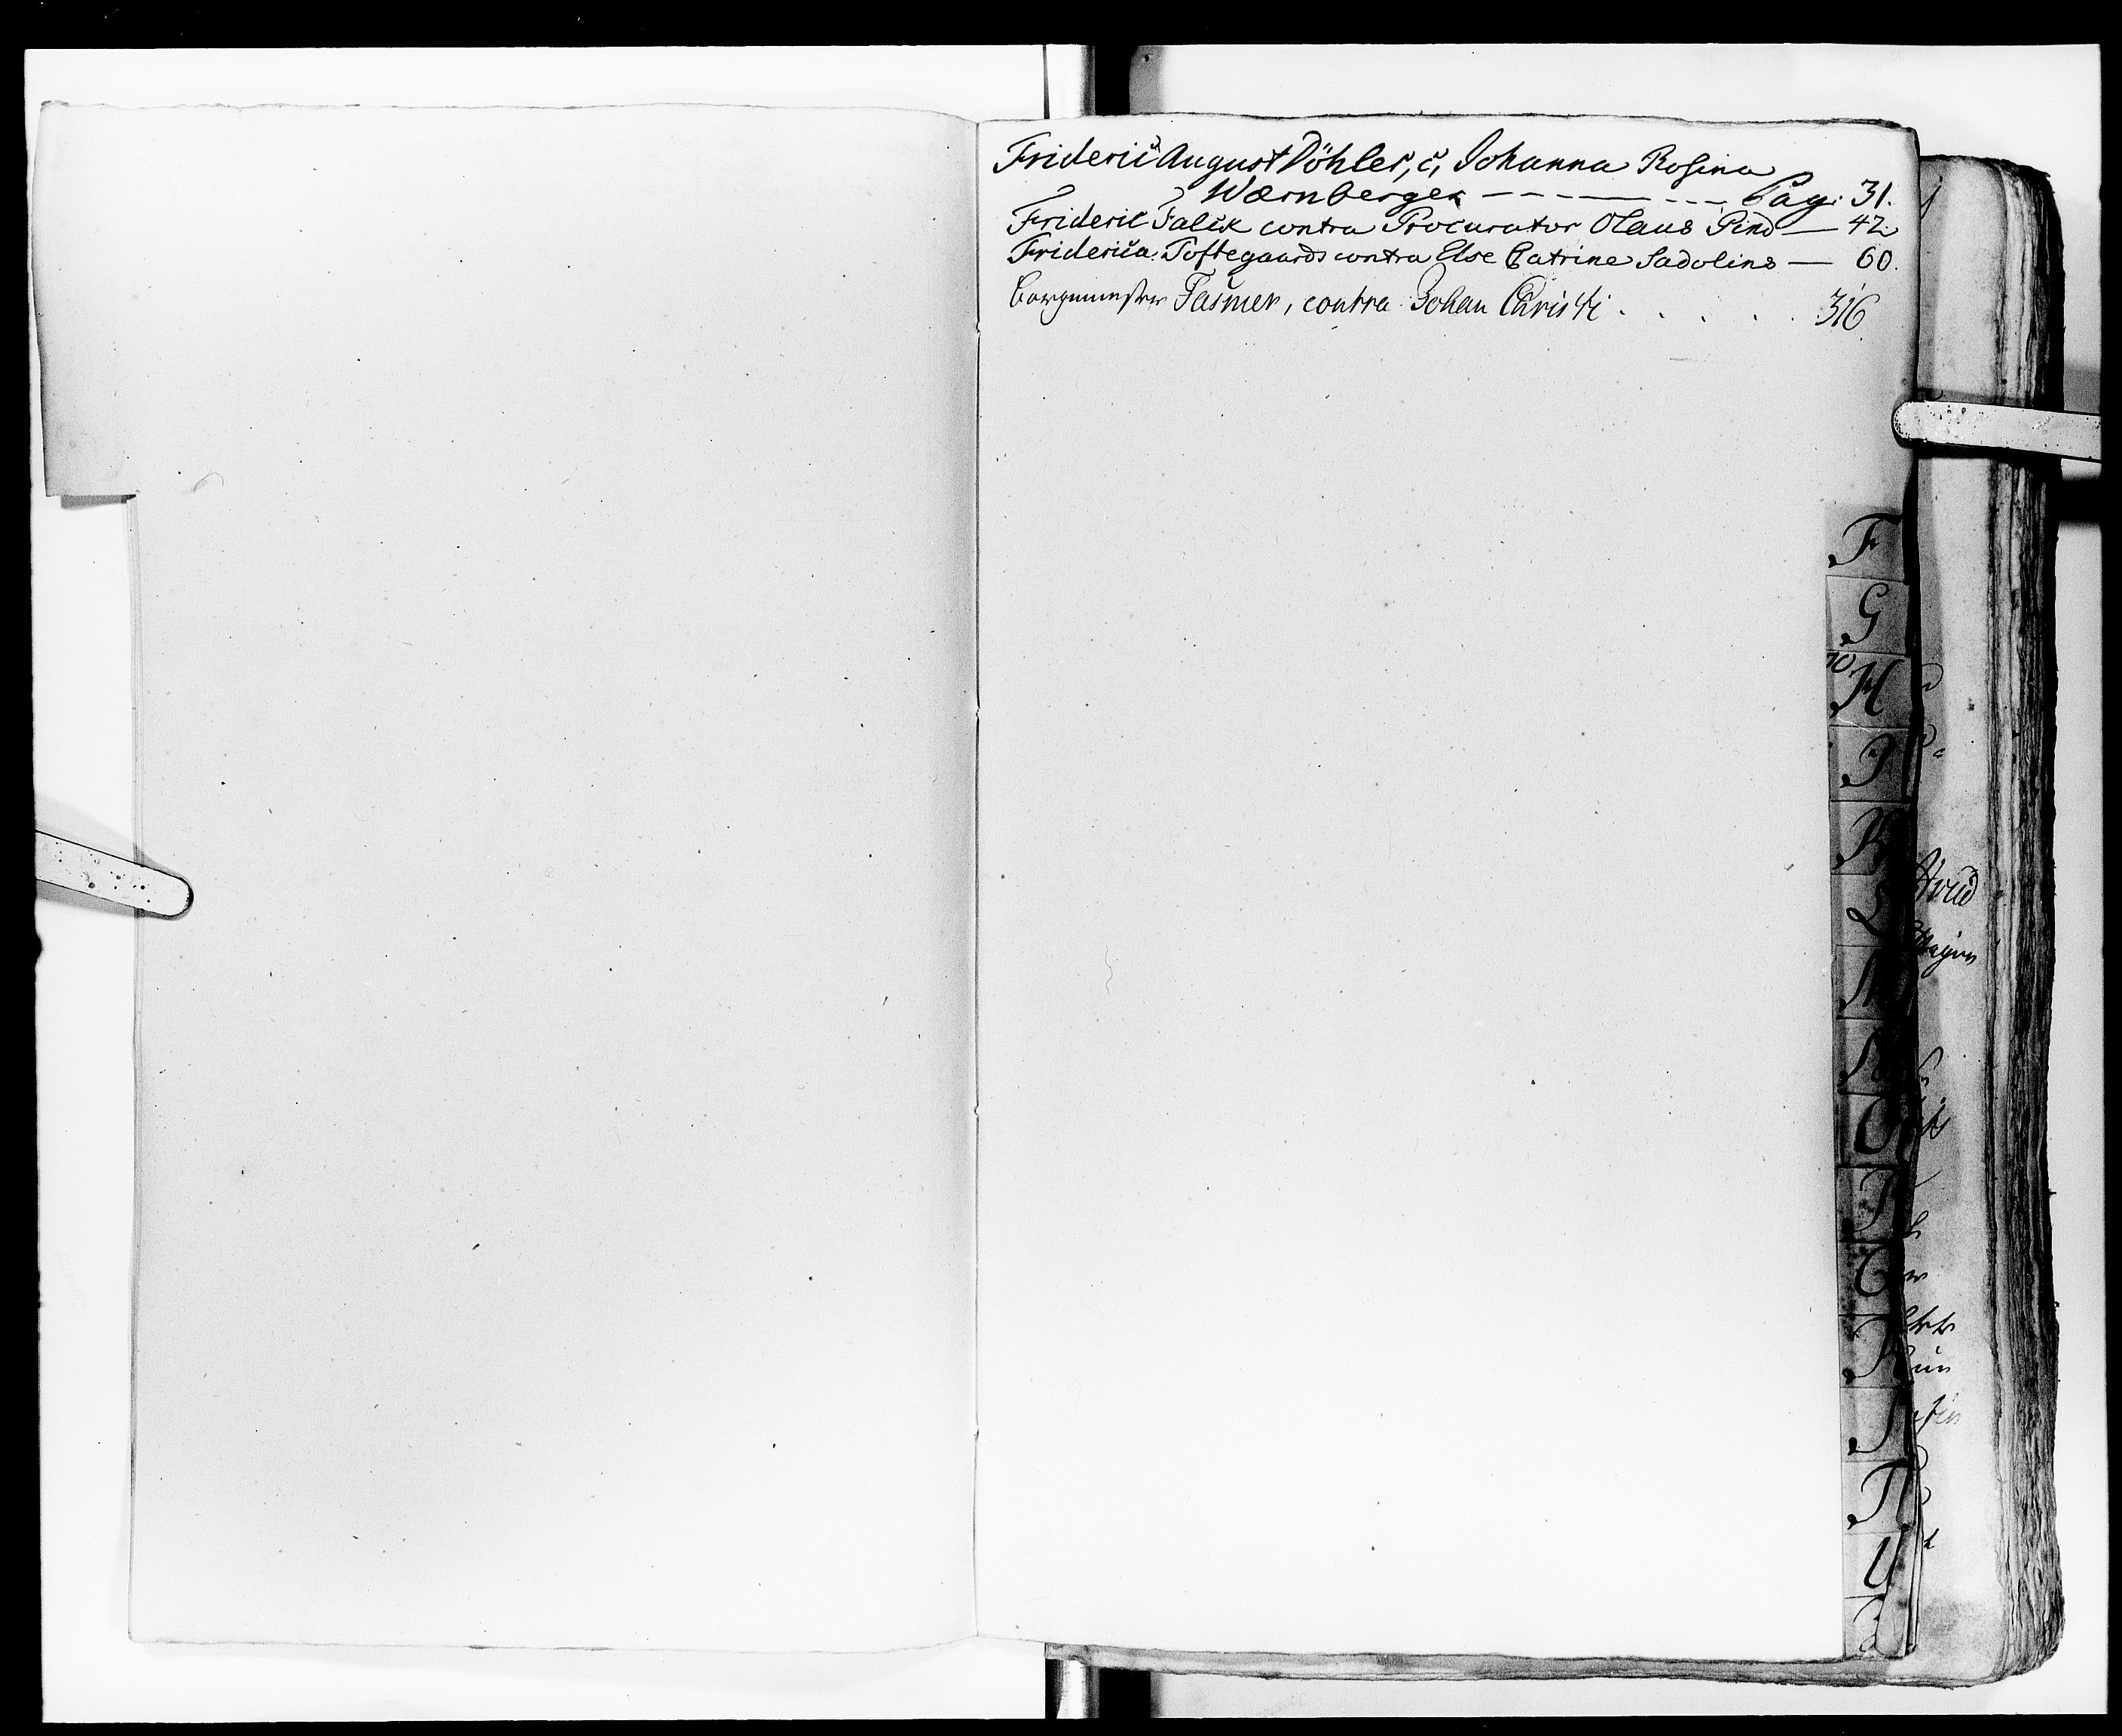 Frideric August Döhler, c, Johanna Rosina
Wærnberger — — — — — — Pag: 31.
Frideric Falck contra Procurator Olaus Pind — 42
Friderica Toftegaards contra Else Catrine Sadolins — 60.
Borgemester Fasmer, contra Johan Christi . . . . . 316.
F
G
70
H
I
K
L
M
N
O
P
Q
R
S
T
U